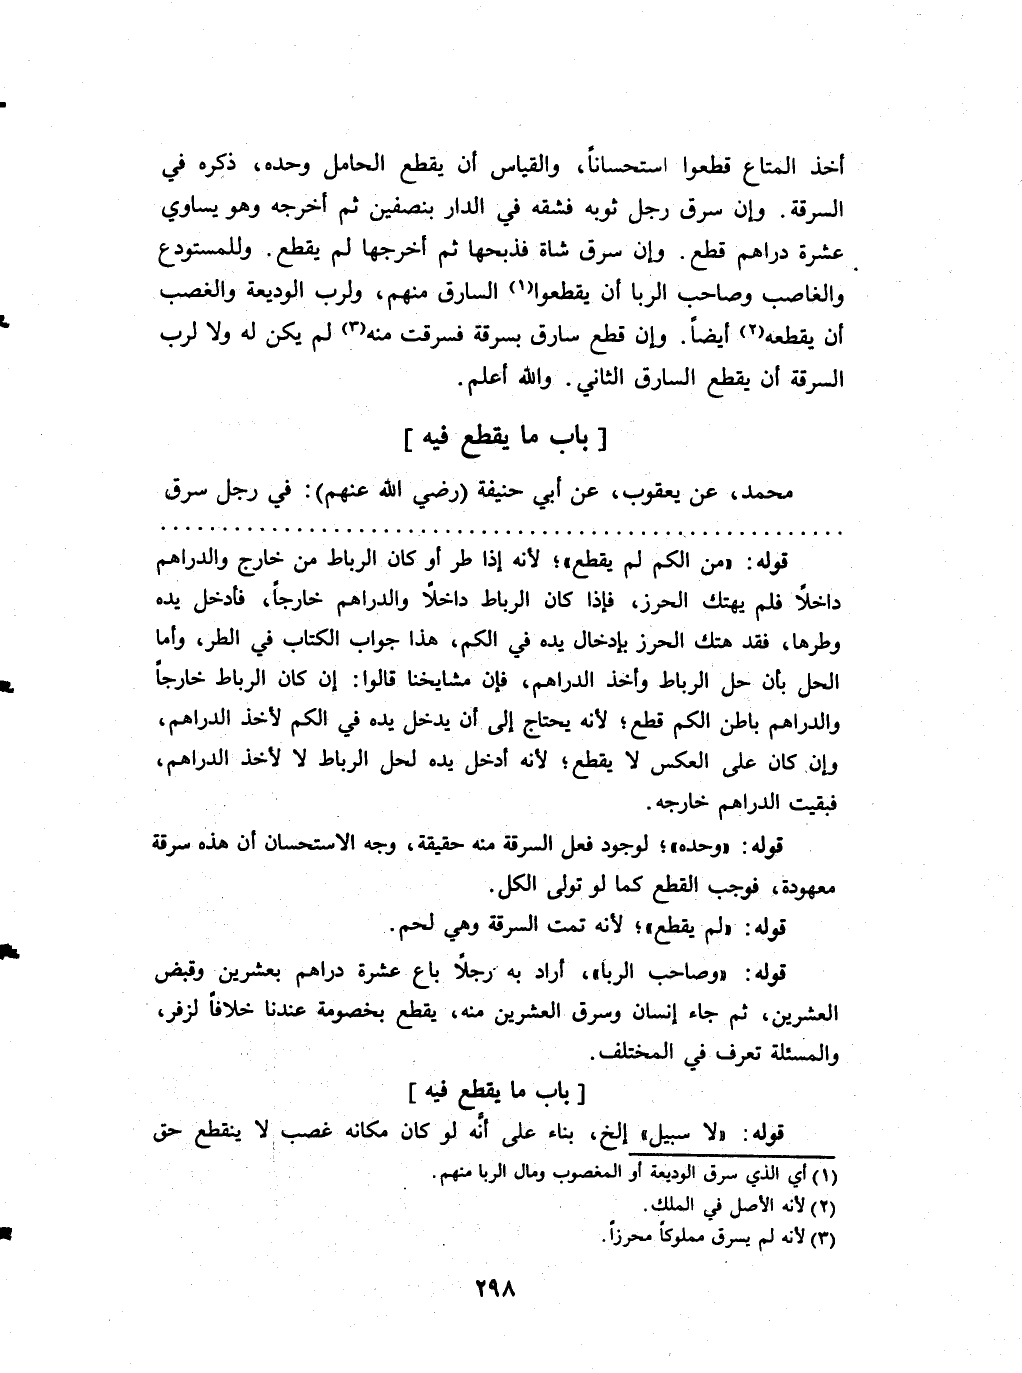 أخذ المتاع قطعوا استحساناً، والقياس أن يقطع الحامل وحده، ذكره في
السرقة. وإن سرق رجل ثوبه فشقه في الدار بنصفين ثم أخرجه وهو يساوي
عشرة دراهم قطع. وإن سرق شاة فذبحها ثم أخرجها لم يقطع. وللمستودع
والغاصب وصاحب الربا أن يقطعوا(١) السارق منهم، ولرب الوديعة والغصب
أن يقطعه(٢) أيضاً. وإن قطع سارق بسرقة فسرقت منه(٣) لم يكن له ولا لرب
السرقة أن يقطع السارق الثاني. والله أعلم.
[ باب ما يقطع فيه ]
محمد، عن يعقوب، عن أبي حنيفة (رضي الله عنهم): في رجل سرق
قوله: «من الكم لم يقطع»؛ لأنه إذا طر أو كان الرباط من خارج والدراهم
داخلًا فلم يهتك الحرز، فإذا كان الرباط داخلًا والدراهم خارجاً، فأدخل يده
وطرها، فقد هتك الحرز بإدخال يده في الكم، هذا جواب الكتاب في الطر، وأما
الحل بأن حل الرباط وأخذ الدراهم، فإن مشايخنا قالوا: إن كان الرباط خارجاً
والدراهم باطن الكم قطع؛ لأنه يحتاج إلى أن يدخل يده في الكم لأخذ الدراهم،
وإن كان على العكس لا يقطع؛ لأنه أدخل يده لحل الرباط لا لأخذ الدراهم،
فبقيت الدراهم خارجه.
قوله: «وحده»؛ لوجود فعل السرقة منه حقيقة، وجه الاستحسان أن هذه سرقة
معهودة، فوجب القطع كما لو تولى الكل.
قوله: «لم يقطع»؛ لأنه تمت السرقة وهي لحم.
قوله: «وصاحب الربا»، أراد به رجلًا باع عشرة دراهم بعشرين وقبض
العشرين، ثم جاء إنسان وسرق العشرين منه، يقطع بخصومة عندنا خلافاً لزفر،
والمسئلة تعرف في المختلف.
[ باب ما يقطع فيه ]
قوله: «لا سبيل» إلخ، بناء على أنَّه لو كان مكانه غصب لا ينقطع حق
(١) أي الذي سرق الوديعة أو المغصوب ومال الربا منهم.
(٢) لأنه الأصل في الملك.
(٣) لأنه لم يسرق مملوكاً محرزاً.
٢٩٨